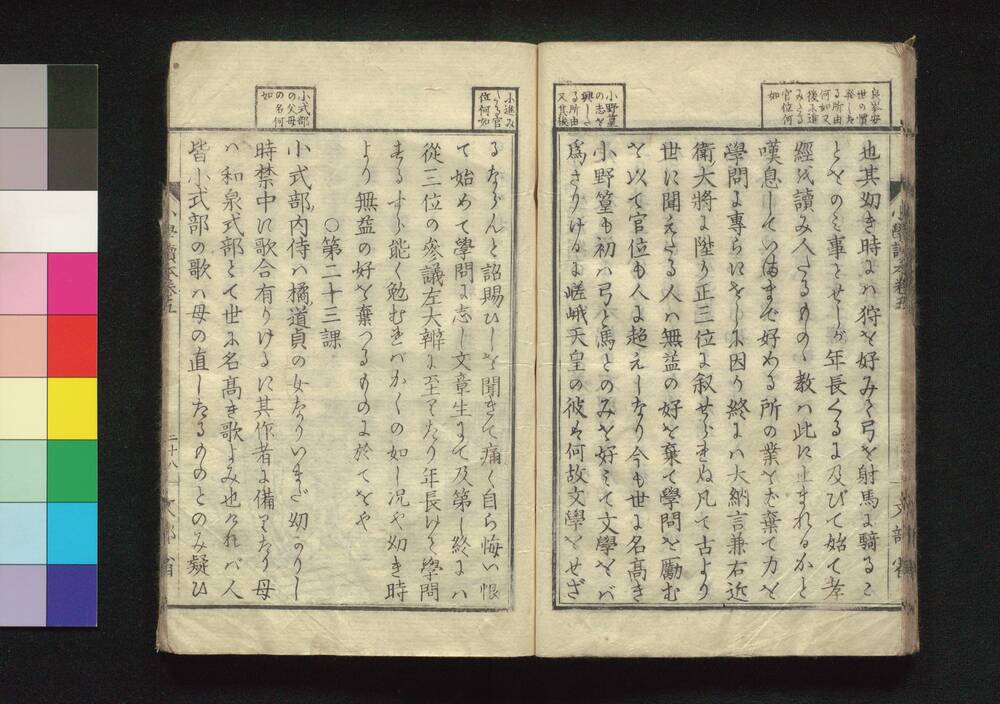 良岑安
世の憤
發した
る所由
何如又
後に進
みたる
官位何
如
也其幼き時には狩を好みて弓を射馬に騎るこ
とをのミ事とせしが年長くるに及びて始て孝
經を讀み人たるものゝ教ハ此に止まれるかと
嘆息していままで好める所の業をば棄て力を
學問に專らにをしに因り終にハ大納言兼右近
衛大將に陞り正三位に叙せられぬ凡て古より
世に聞えたる人ハ無益の好を棄て學問を勵む
を以て官位も人に超えしなり今も世に名高き
小野篁も初ハ弓と馬とのみを好ミて文學をバ
爲さりける に嵯峨天皇の彼は何故文學をせざ
小野篁
の志を
興した
る所由
又其後
小學讀本卷五
文部省
に進み
たる官
位何如
るならんと詔賜ひしを聞きて痛く自ら悔い恨
て始めて學問に志し文章生にて及第し終にハ
從三位の參議左大辨に至りたり年長けて學問
するすら能く勉むれバかくの如し況や幼き時
より無益の好を棄つるものに於てをや
○第二十三課
小式部内侍ハ橘道貞の女なりいまだ幼かりし
時禁中に歌合有りけるに其作者に備りたり母
ハ和泉式部とて世に名高き歌よみ也けれバ人
皆小式部の歌ハ母の直したるものとのみ疑ひ
小式部
の父母
の名何
如
小學讀本卷五
二十八
文部省